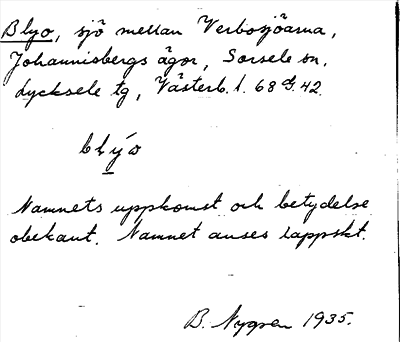 Blyo, sjö mellan Verbosjöarna,
Johannisbergs ägor, Sorsele sn,
Lycksele tg, Västerb. l. 68 42.
blýo
Namnets uppkomst och betydelse
obekant. Namnet anses lappskt.
B. Nygren 1935.